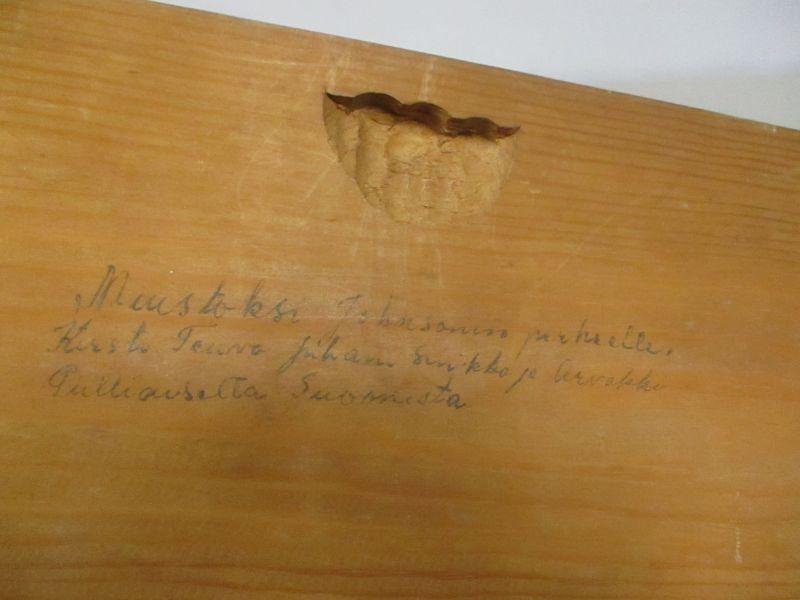 Muistoksi Johnsonin perheelle.
Kirsti Teuvo Juhani Sinikka ja Orvokki
Pulliaiselta Suomesta